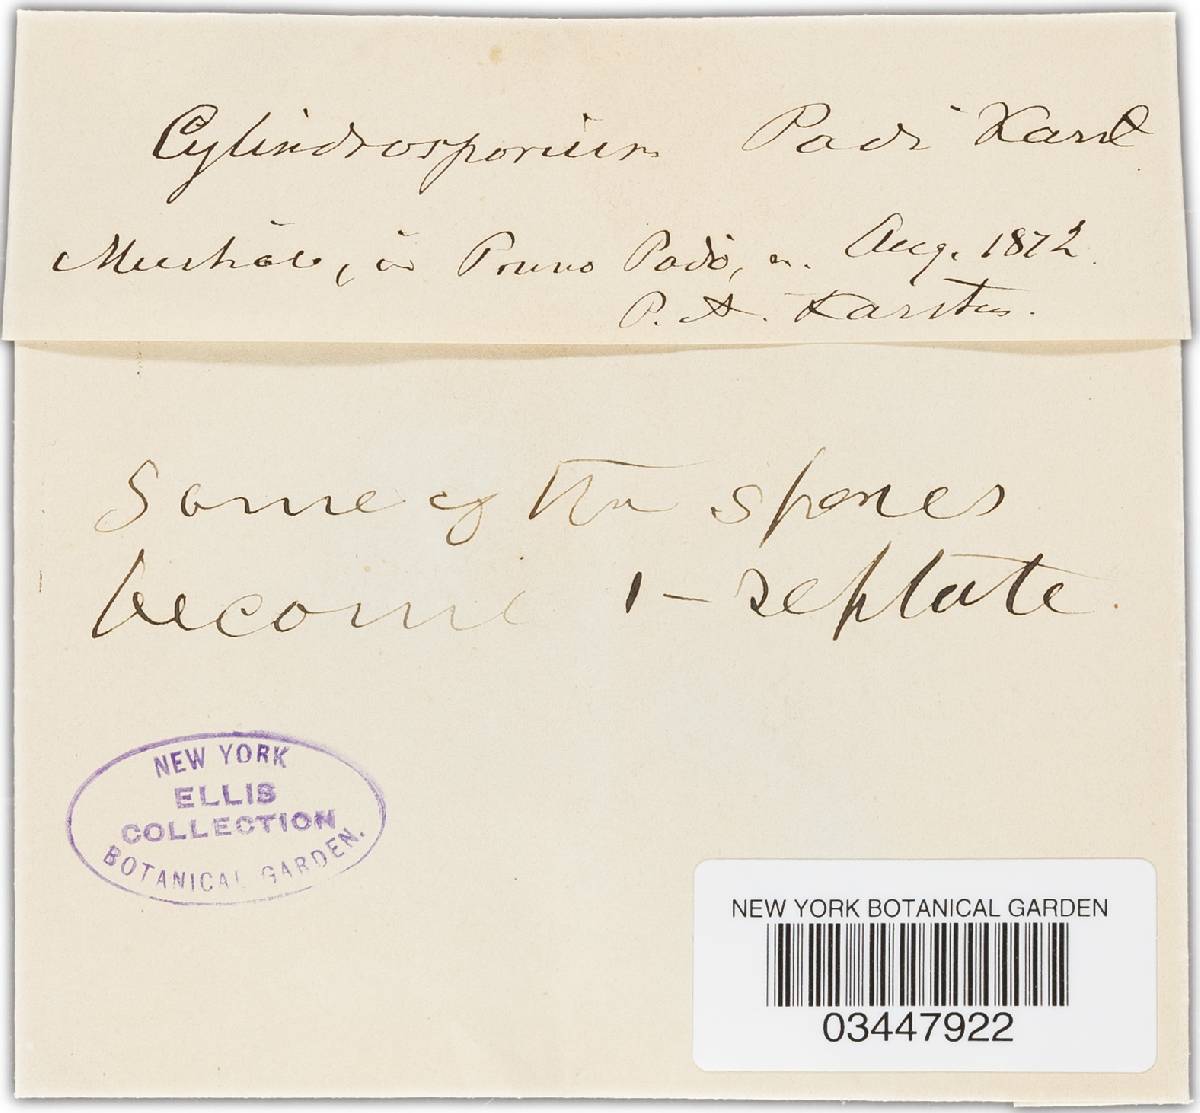 Cylindrosporium Padi Karst
Mustiala, in Pruno Pado, m. Aug. 1872.
P. A. Karsten.
Some of the spores
become 1-septate.
NEW YORK
ELLIS
COLLECTION
BOTANICAL GARDEN.
NEW YORK BOTANICAL GARDEN
03447922